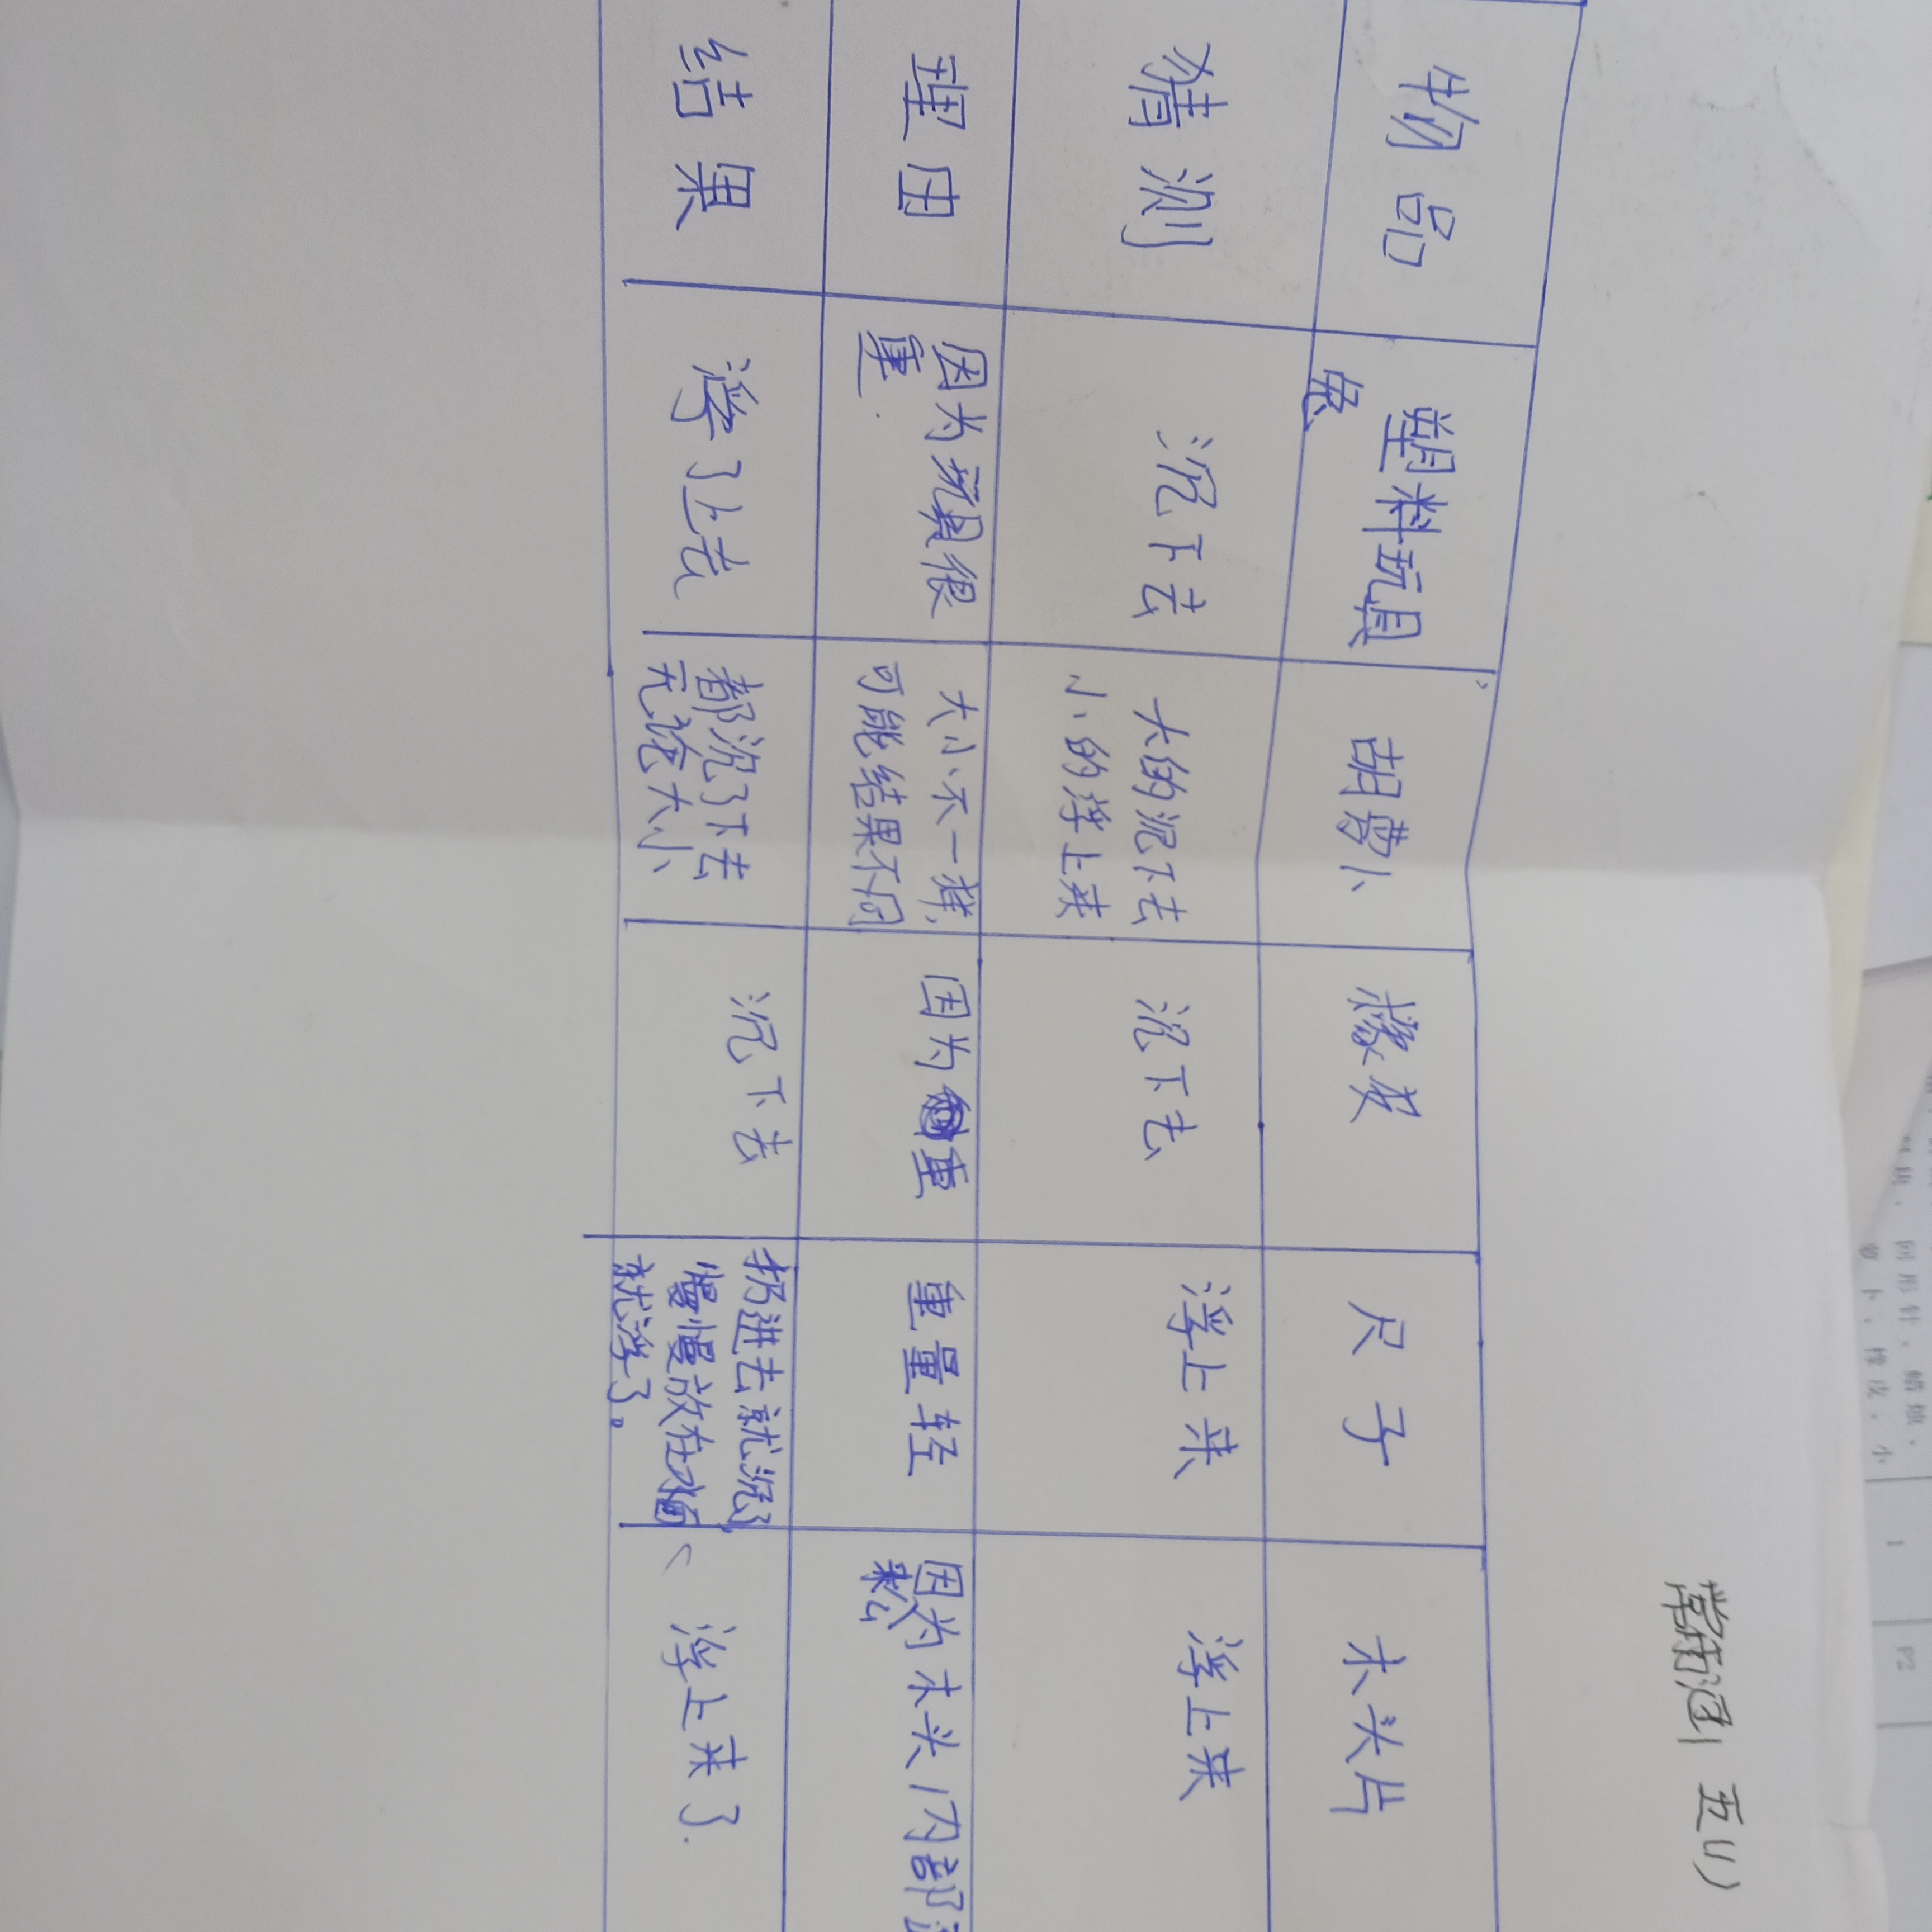 常雨涵 五(1)
物品
塑料玩具
猜测
沉下去
理由
因为玩具很
重.
结果
浮了上去
胡萝卜
大的沉下去
小的浮上来
大小不一样,
可能结果不同
都沉了下去
无论大小
橡皮
沉下去
因为
重
沉下去
尺子
浮上来
重量轻
扔进去就沉了
慢慢放在水面
就浮了。
木头片
浮上来
因为木头内部
松
浮上来了.
回形针、蜡烛、
萝卜、橡皮、小